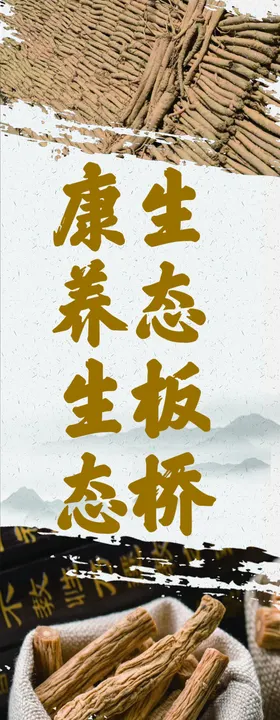 生态板桥
康养生态